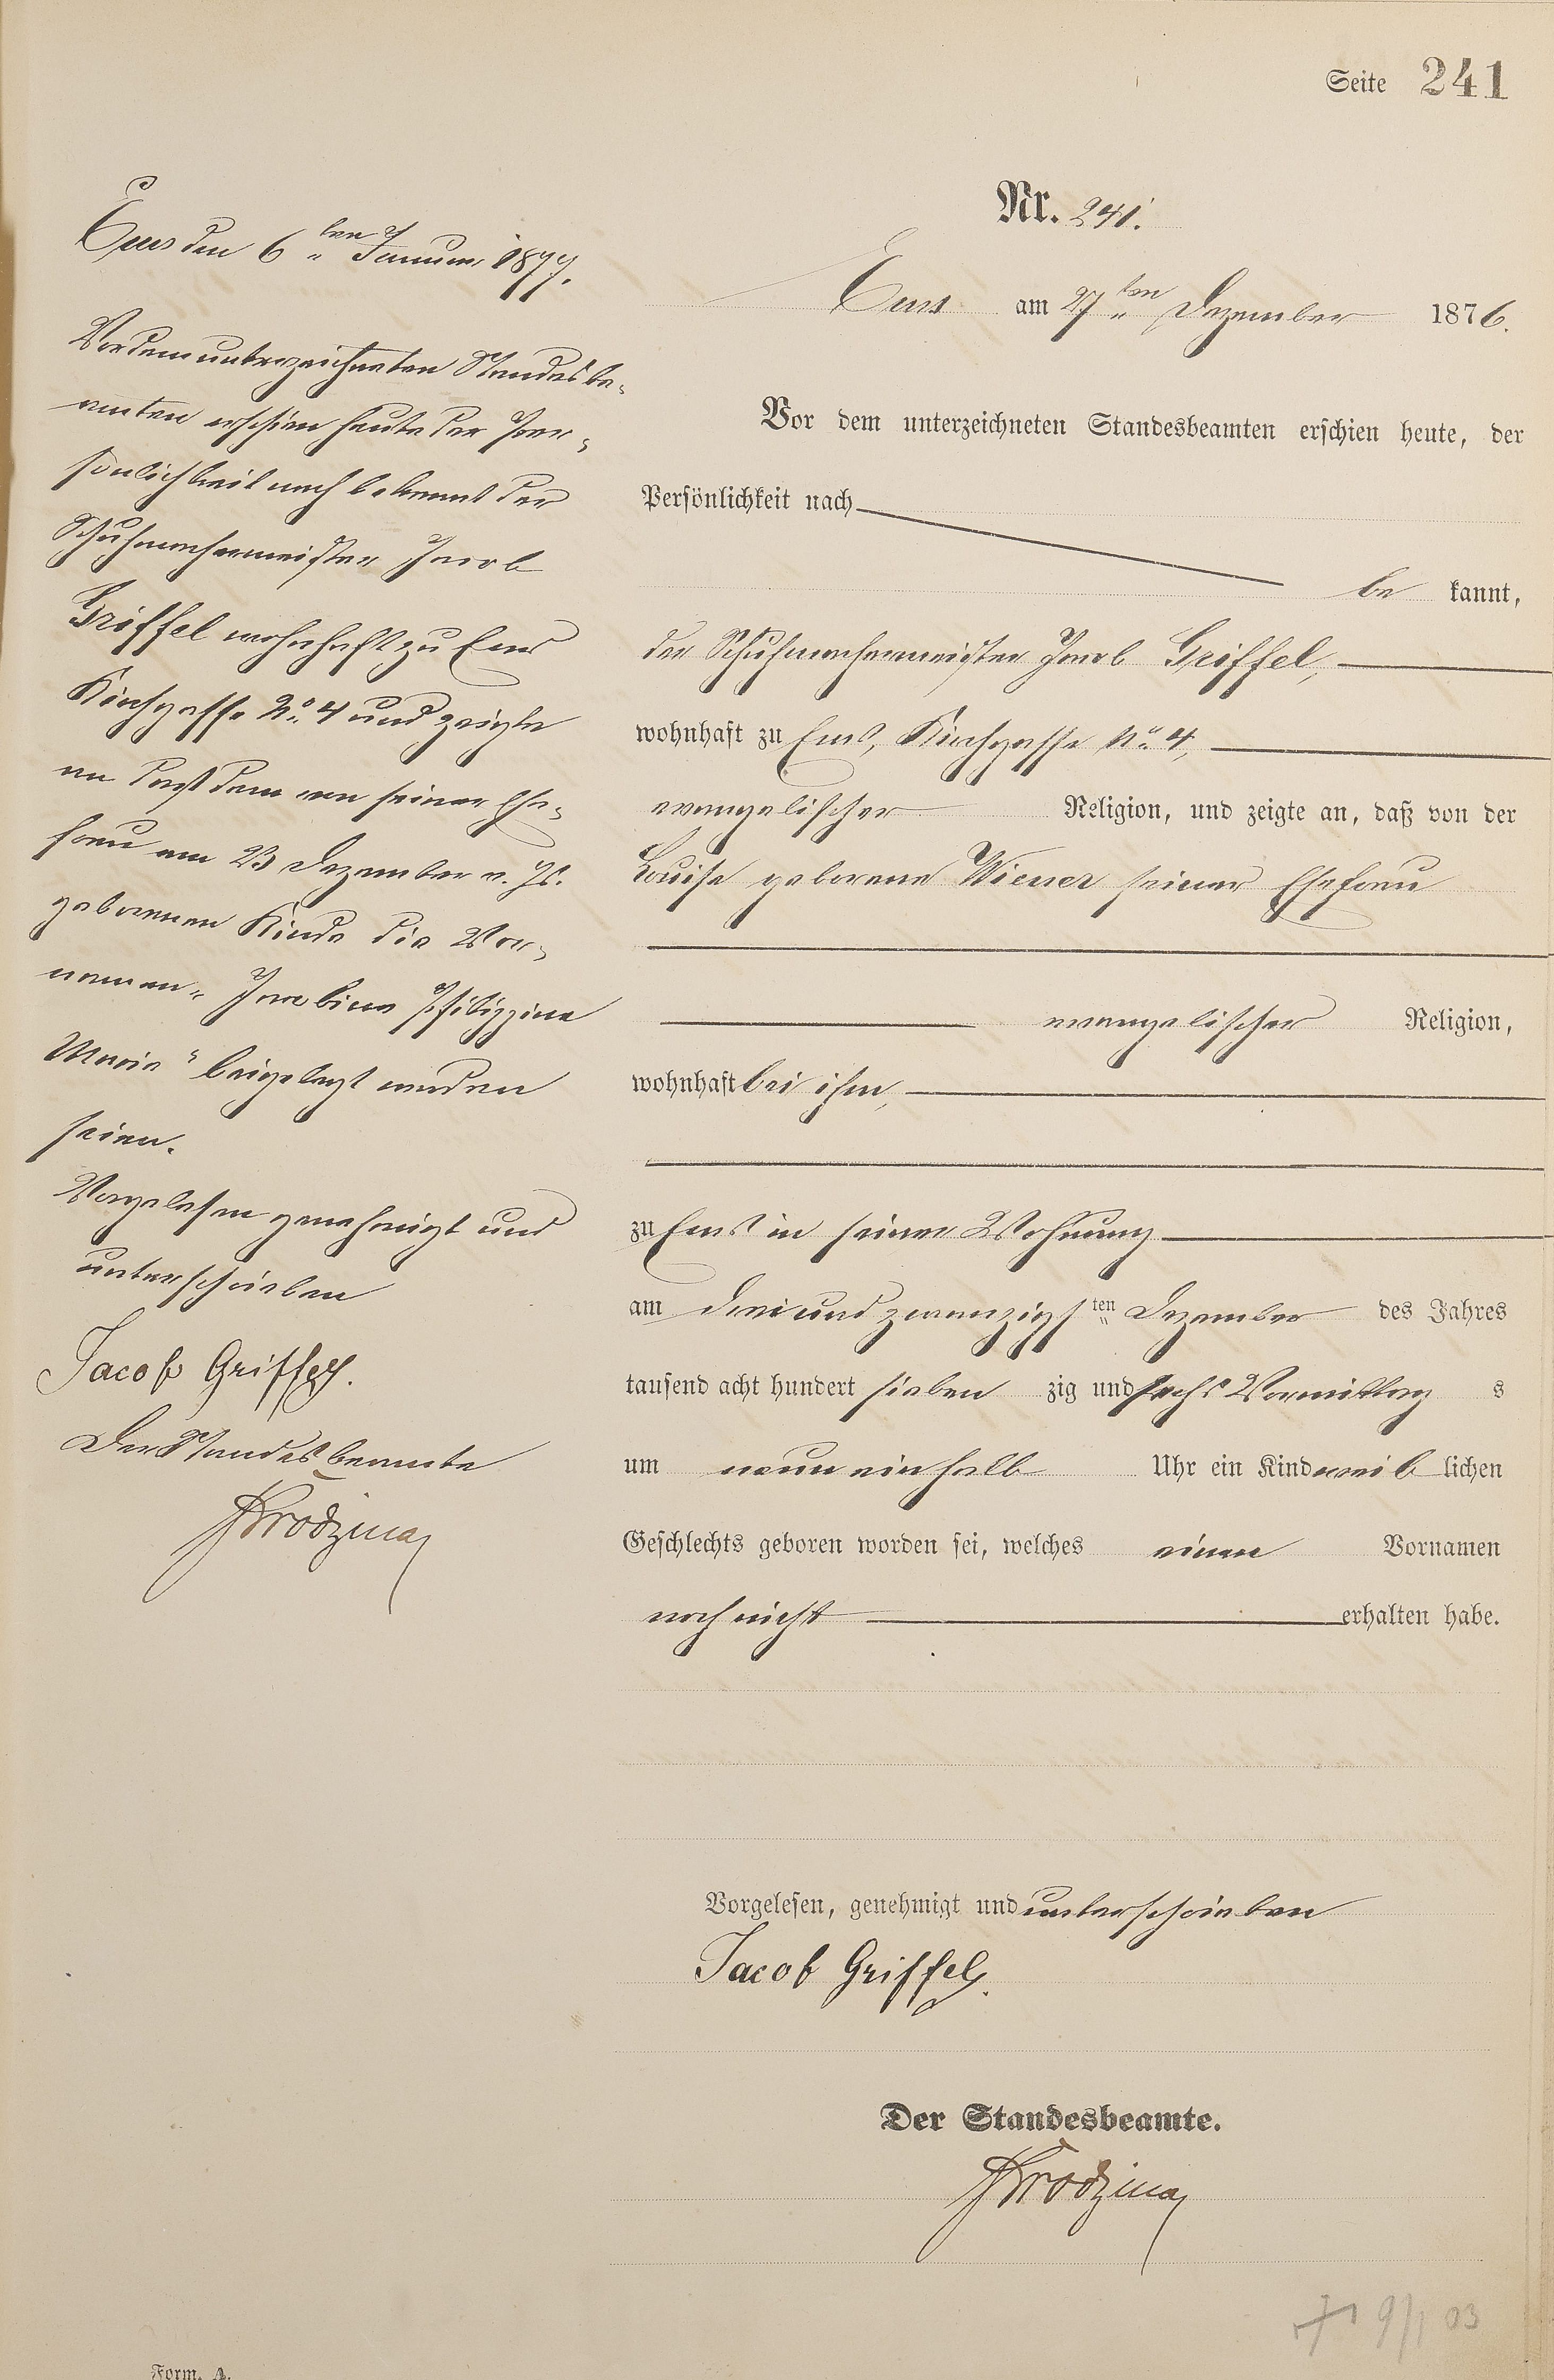 Seite 241
Nr. 241.
Ems am 27ten Dezember 1876.
Vor dem unterzeichneten Standesbeamten erschien heute, der
Persönlichkeit nach
be kannt,
der Schuhmachermeister Jacob Griffel,
wohnhaft zu Ems, Kirchgasse No. 4,
evangelischer Religion, und zeigte an, daß von der
Louise geborene Wiener seiner Ehefrau
evangelischer Religion,
wohnhaft bei ihm,
zu Ems in seiner Wohnung
am drei und zwanzigsten Dezember des Jahres
tausend acht hundert sieben zig und sechs Vormittag s
um neun ein halb Uhr ein Kind weib lichen
Geschlechts geboren worden sei, welches einen Vornamen
noch nicht erhalten habe.
Vorgelesen, genehmigt und unterschrieben
Jacob Griffel.
Der Standesbeamte.
Ems den 6ten Januar 1877.
Vor dem unterzeichneten Standesbe-
amten erschien heute der Per-
sönlichkeit nach bekannt der
Schuhmachermeister Jacob
Griffel wohnhaft zu Ems
Kirchgasse No. 4 und zeigte
an daß dem von seiner Ehe-
frau am 23 Dezember v. Js.
geborenen Kinde die Vor-
namen „Jacobine Philippine
Maria“ beigelegt worden
seien.
Vorgelesen genehmigt und
unterschrieben
Jacob Griffel.
Der Standesbeamte
9/1 03
Form. A.